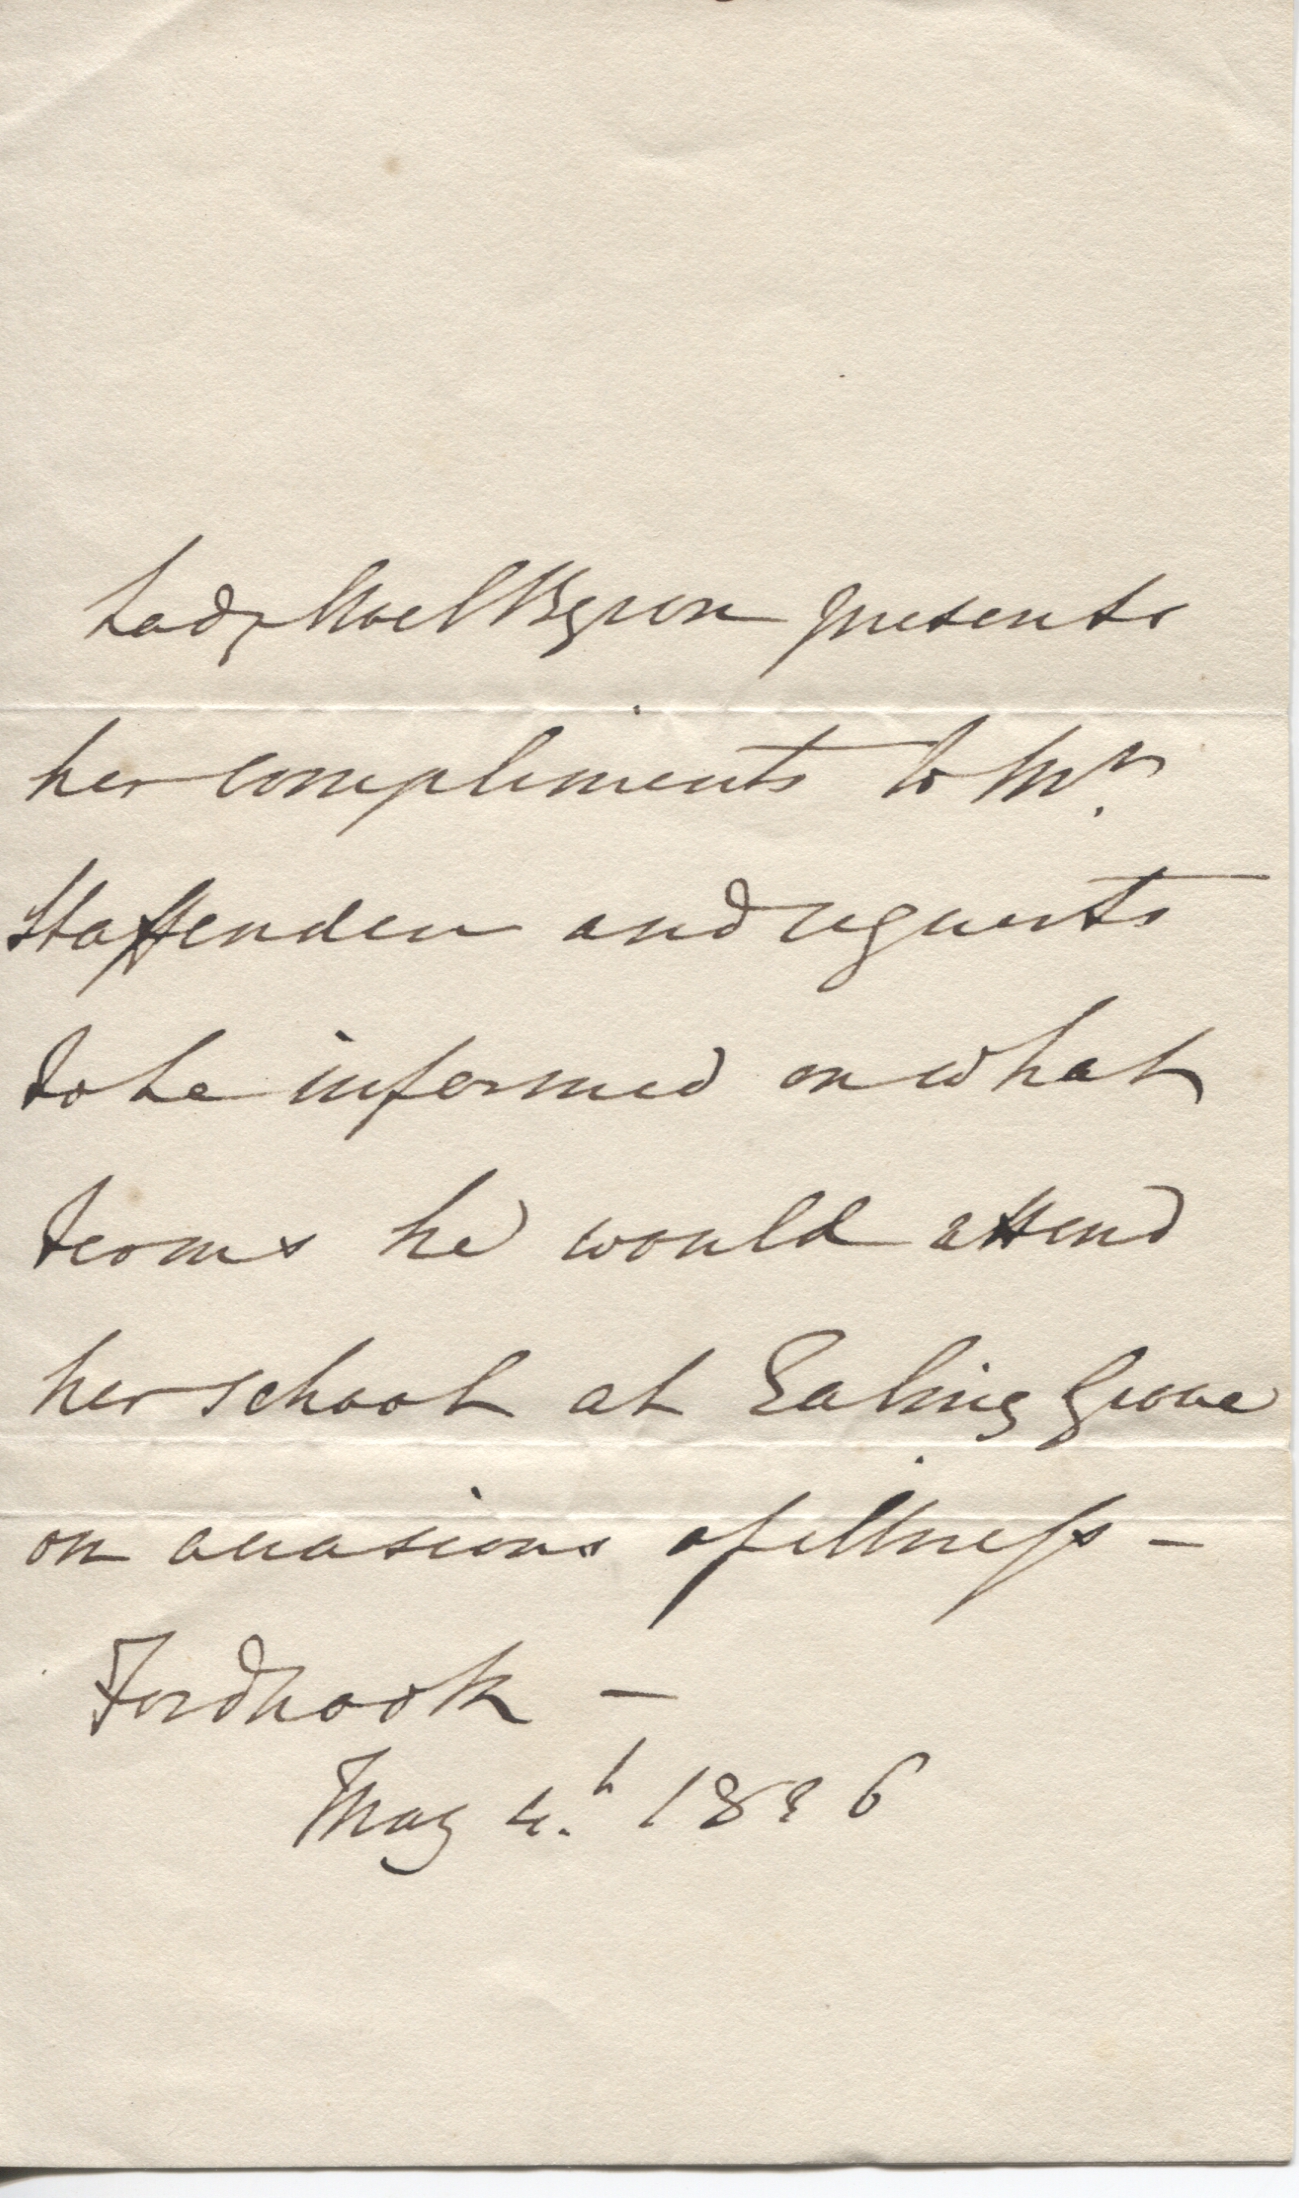 Lady Noel Byron presents
her compliments to Mr.
Staffenden and requests
to be informed on what
terms he would attend
her school at Ealing Grove
on occasions of illness –
Fordhook –
May 4.th 1836